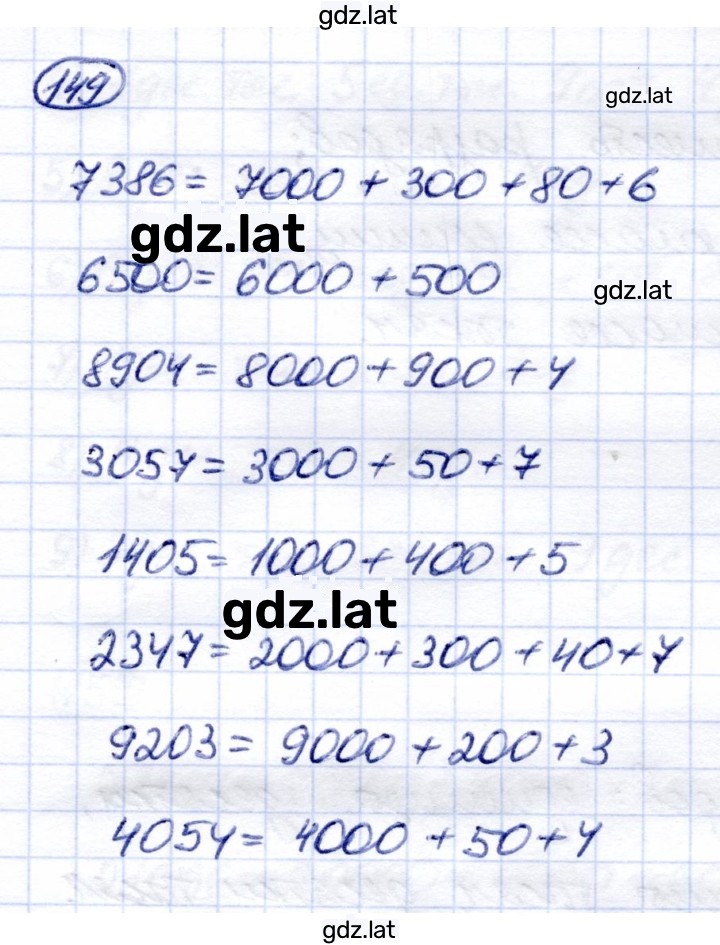 gdz.lat
149
gdz.lat
7386 = 7000 + 300 + 80 + 6
gdz.lat
6500 = 6000 + 500
gdz.lat
8904 = 8000 + 900 + 4
3057 = 3000 + 50 + 7
1405 = 1000 + 400 + 5
gdz.lat
2347 = 2000 + 300 + 40 + 7
9203 = 9000 + 200 + 3
4054 = 4000 + 50 + 4
gdz.lat